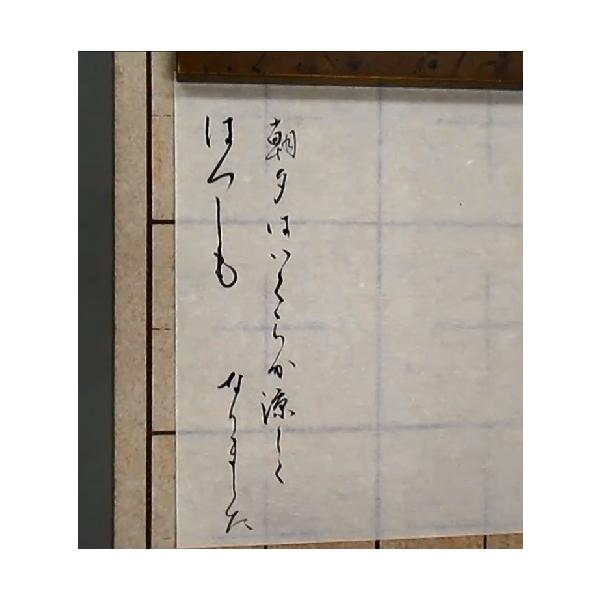 朝夕はいくらか涼しく
なりました
はつしも